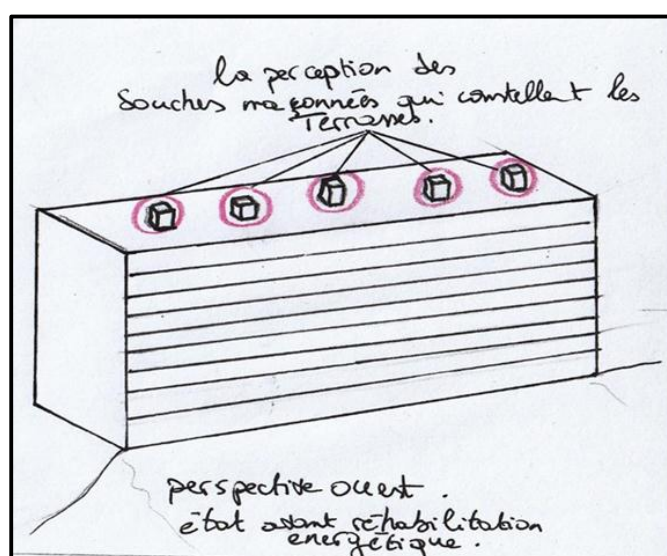 la perception des
souches maçonnées qui constellent les
Terrasses.
perspective ouest.
état avant réhabilitation
énergétique.